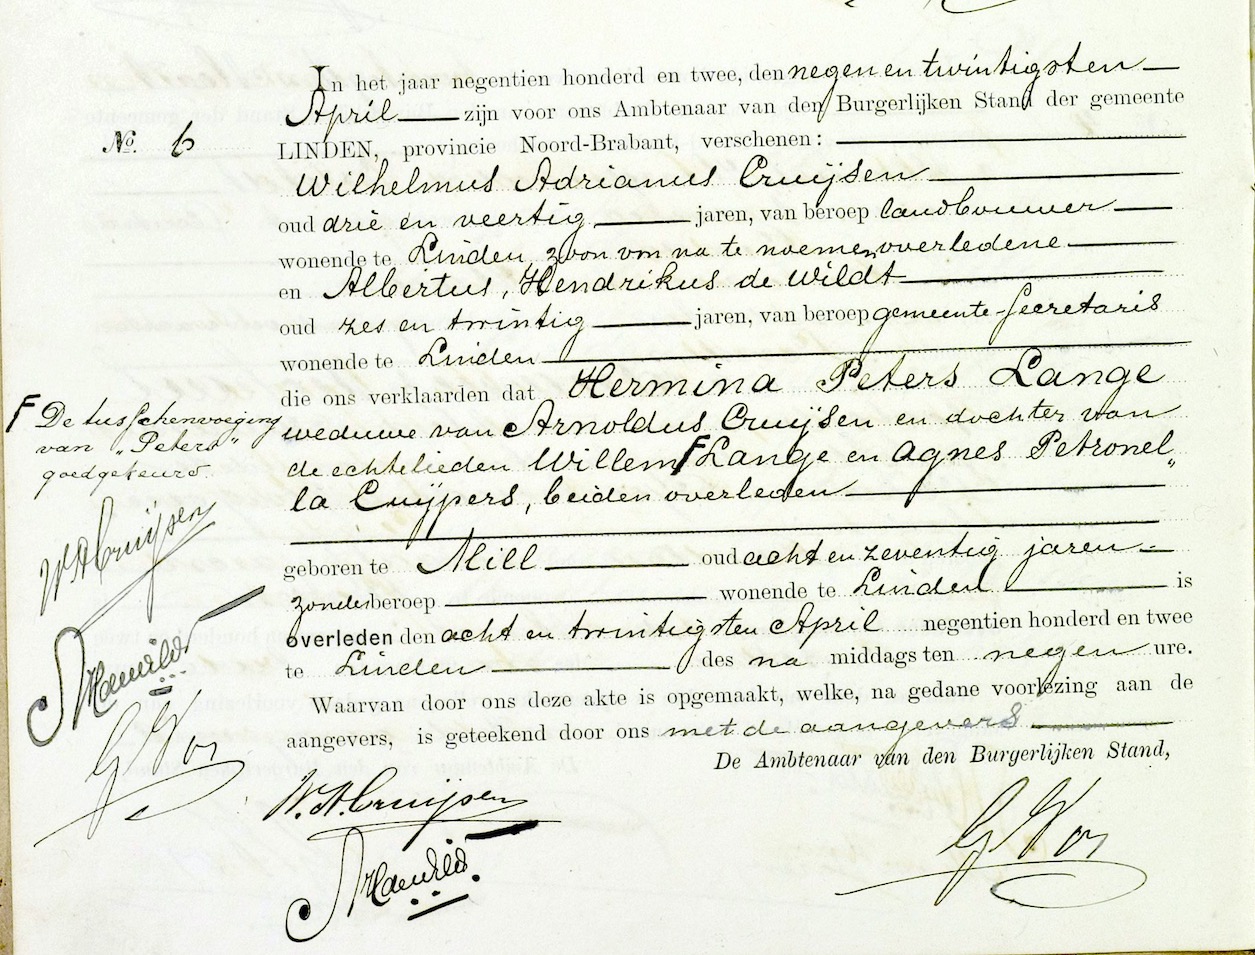 In het jaar negentien honderd en twee, den negen en twintigsten
April zijn voor ons Ambtenaar van den Burgerlijken Stand der gemeente
No. 6
LINDEN, provincie Noord-Brabant, verschenen:
Wilhelmus Adrianus Cruijsen
oud drie en veertig jaren, van beroep landbouwer
wonende te Linden, zoon van na te noemen overledene
en Albertus, Hendrikus de Wildt
oud zes en twintig jaren, van beroep gemeente-Secretaris
wonende te Linden
die ons verklaarden dat Hermina Peters Lange
weduwe van Arnoldus Cruijsen en dochter van
de echtelieden Willem F Lange en Agnes Petronel„
la Cuijpers, beiden overleden
geboren te Mill oud acht en zeventig jaren
zonder beroep wonende te Linden is
overleden den acht en twintigsten April negentien honderd en twee
te Linden des na middags ten negen ure.
Waarvan door ons deze akte is opgemaakt, welke, na gedane voorlezing aan de
aangevers, is geteekend door ons met de aangevers
De Ambtenaar van den Burgerlijken Stand,
W. A. Cruijsen
G Vos
F De tusschenvoeging
van „Peters"
goedgekeurd.
W A Cruijsen
G Vos